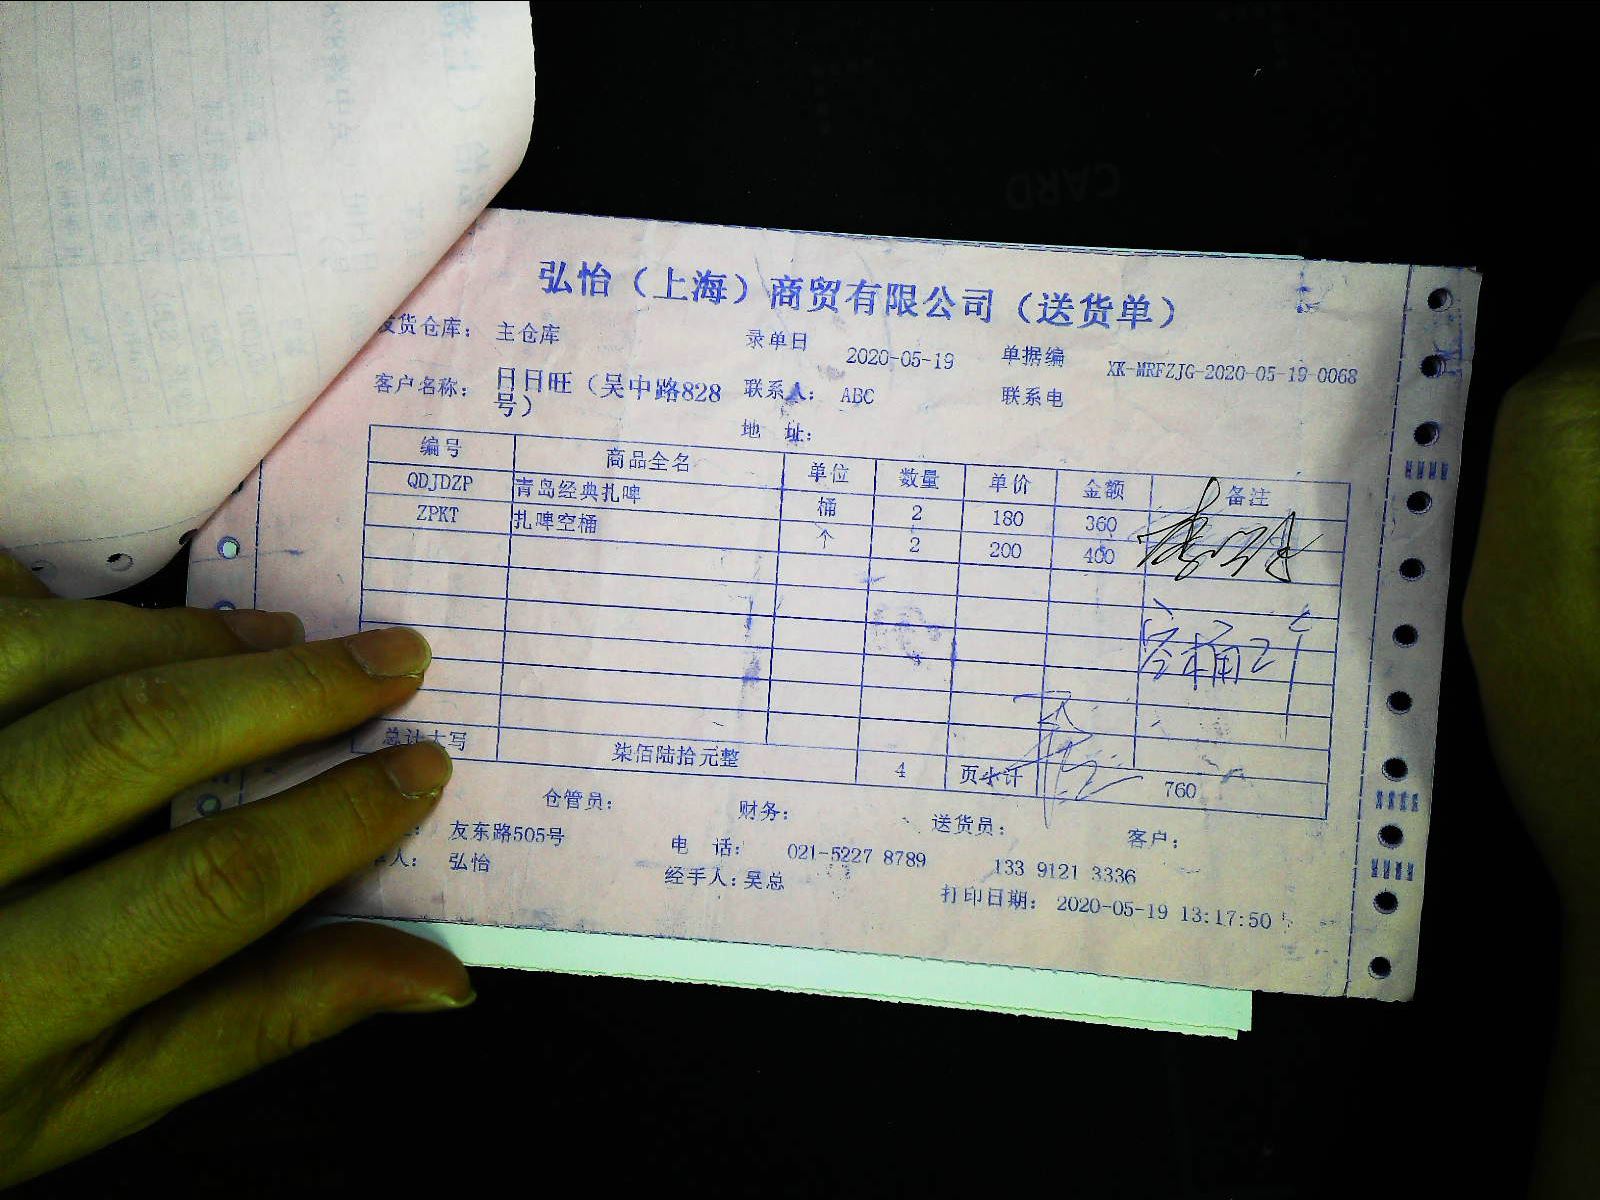 弘怡（上海）商贸有限公司（送货单）
发货仓库： 主仓库 录单日 2020-05-19 单据编 XK-MRFZJG-2020-05-19-0068
客户名称： 日日旺（吴中路828号） 联系人： ABC 联系电
地 址：
编号 商品全名 单位 数量 单价 金额 备注
QDJDZP 青岛经典扎啤 桶 2 180 360
ZPKT 扎啤空桶 个 2 200 400
空桶2个
总计大写 柒佰陆拾元整 4 页小计 760
仓管员： 财务： 送货员： 客户：
友东路505号 电 话： 021-5227 8789 133 9121 3336
人： 弘怡 经手人：吴总 打印日期： 2020-05-19 13:17:50
CARD